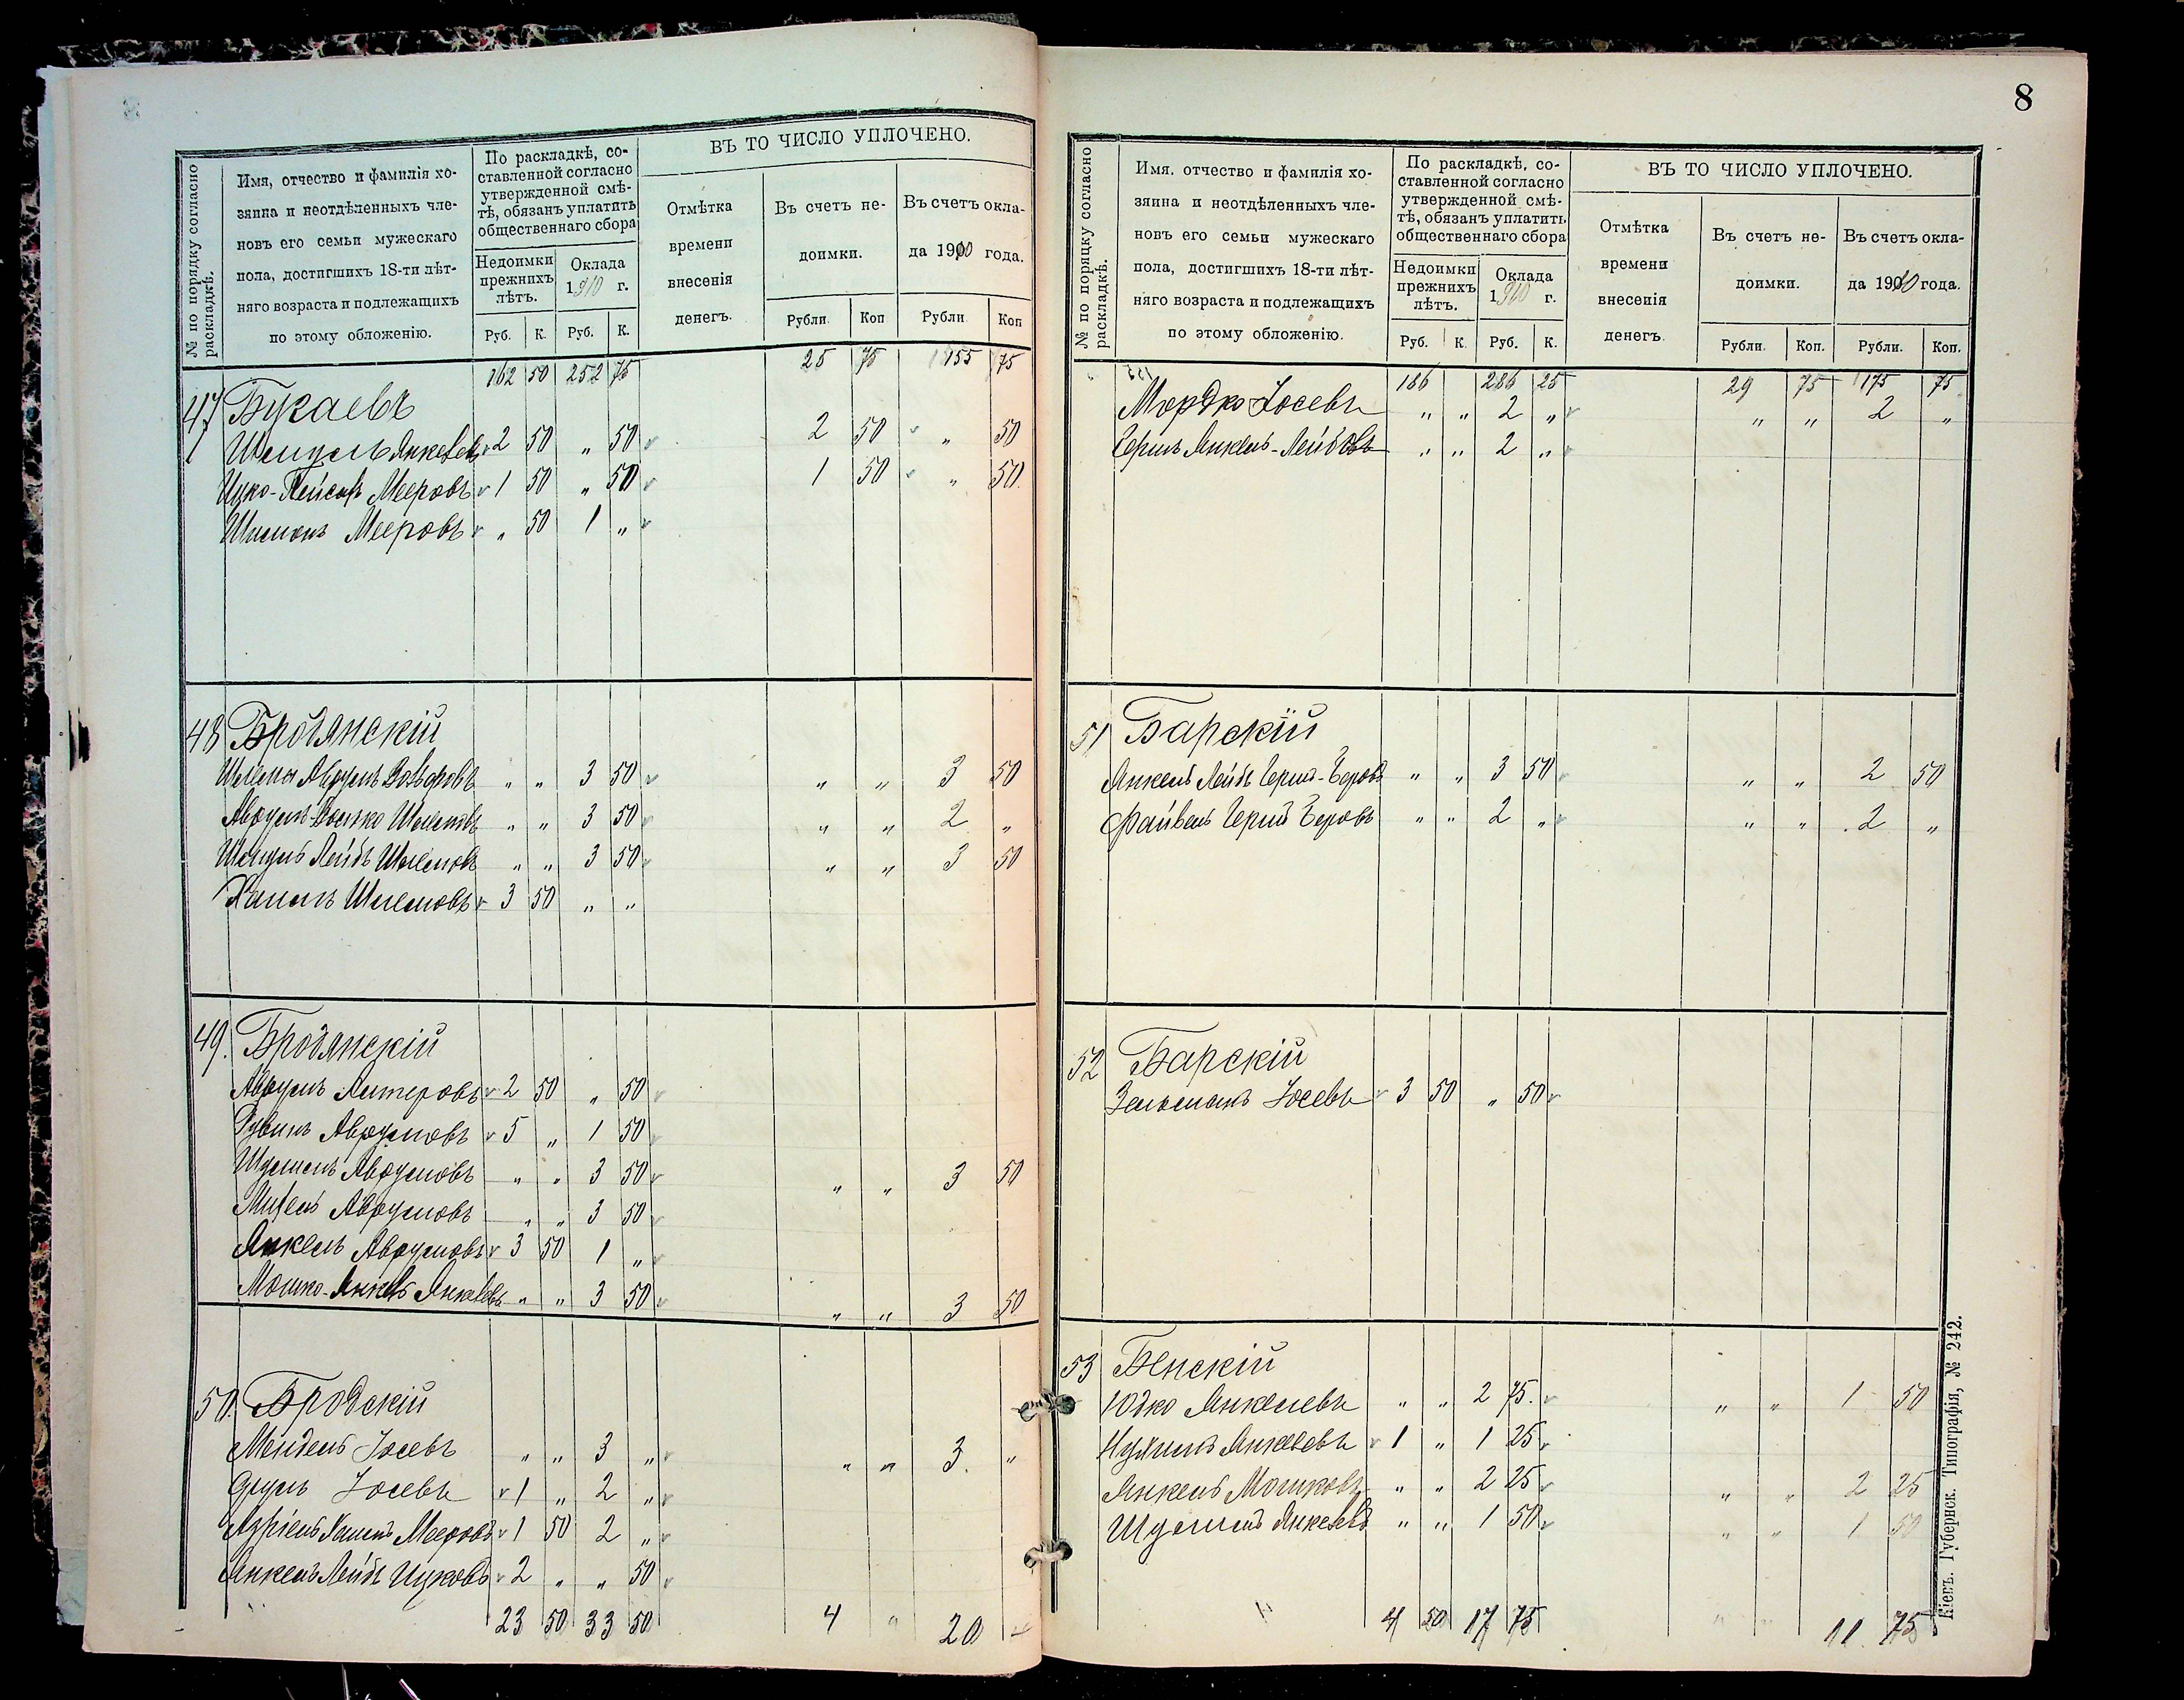 8
№ по порядку согласно раскладкѣ.
Имя, отчество и фамилія хо-
зяина и неотдѣленныхъ чле-
новъ его семьи мужескаго
пола, достигшихъ 18-ти лѣт-
няго возраста и подлежащихъ
по этому обложенію.
По раскладкѣ, со-
ставленной согласно
утвержденной смѣ-
тѣ, обязанъ уплатить
общественнаго сбора
Недоимки
прежнихъ
лѣтъ.
Оклада
1910 г.
Руб. К. Руб. К.
ВЪ ТО ЧИСЛО УПЛОЧЕНО.
Отмѣтка
времени
внесенія
денегъ.
Въ счетъ не-
доимки.
Въ счетъ окла-
да 1910 года.
Рубли Коп Рубли Коп
162 50 252 75 25 75 155 75
47 Букаевъ
Шмуль Янкелевъ 2 50 " 50 2 50 " 50
Ицко-Пейсахъ Мееровъ 1 50 " 50 1 50 " 50
Шимонъ Мееровъ " 50 1 "
48 Бродянскій
Шлема Аврумъ Вольфовъ " " 3 50 " " 3 50
Аврумъ-Іосько Шлемовъ " " 3 50 " " 2 "
Шмуль Лейбъ Шлемовъ " " 3 50 " " 3 50
Хаимъ Шлемовъ 3 50 " "
49. Бродянскій
Аврумъ Алтеровъ 2 50 " 50
Рувинъ Аврумовъ 5 " 1 50
Шулимъ Аврумовъ " " 3 50 " " 3 50
Михель Аврумовъ " " 3 50
Янкель Аврумовъ 3 50 1 "
Мошко-Янкель Янкелевъ " " 3 50 " " 3 50
50. Бродскій
Мендель Іосевъ " " 3 " " " 3. "
Сруль Іосевъ 1 " 2 "
Азріель Хаимъ Мееровъ 1 50 2 "
Янкель Лейбъ Ицковъ 2 " " 50
23 50 33 50 4 " 20 "
№ по порядку согласно раскладкѣ.
Имя, отчество и фамилія хо-
зяина и неотдѣленныхъ чле-
новъ его семьи мужескаго
пола, достигшихъ 18-ти лѣт-
няго возраста и подлежащихъ
по этому обложенію.
По раскладкѣ, со-
ставленной согласно
утвержденной смѣ-
тѣ, обязанъ уплатить
общественнаго сбора
Недоимки
прежнихъ
лѣтъ.
Оклада
1910 г.
Руб. К. Руб. К.
ВЪ ТО ЧИСЛО УПЛОЧЕНО.
Отмѣтка
времени
внесенія
денегъ.
Въ счетъ не-
доимки.
Въ счетъ окла-
да 1910 года.
Рубли. Коп. Рубли. Коп.
186 286 25 29 75 175 75
Мордко Іосевъ " " 2 " " " 2 "
Герш Янкель-Лейбовъ " " 2 "
51 Барскій
Янкель Лейбъ Герш-Беровъ " " 3 50 " " 2 50
Файвель Герш Беровъ " " 2 " " " 2 "
52 Барскій
Зельманъ Іосевъ 3 50 " 50
53 Бенскій
Юдко Янкелевъ " " 2 75. " " 1 50
Нухимъ Янкелевъ 1 " 1 25
Янкель Мошковъ " " 2 25 " " 2 25
Шулимъ Янкелевъ " " 1 50 " " 1 50
4 50 17 75 " " 11 75
Кіевъ. Губернск. Типографія, № 242.